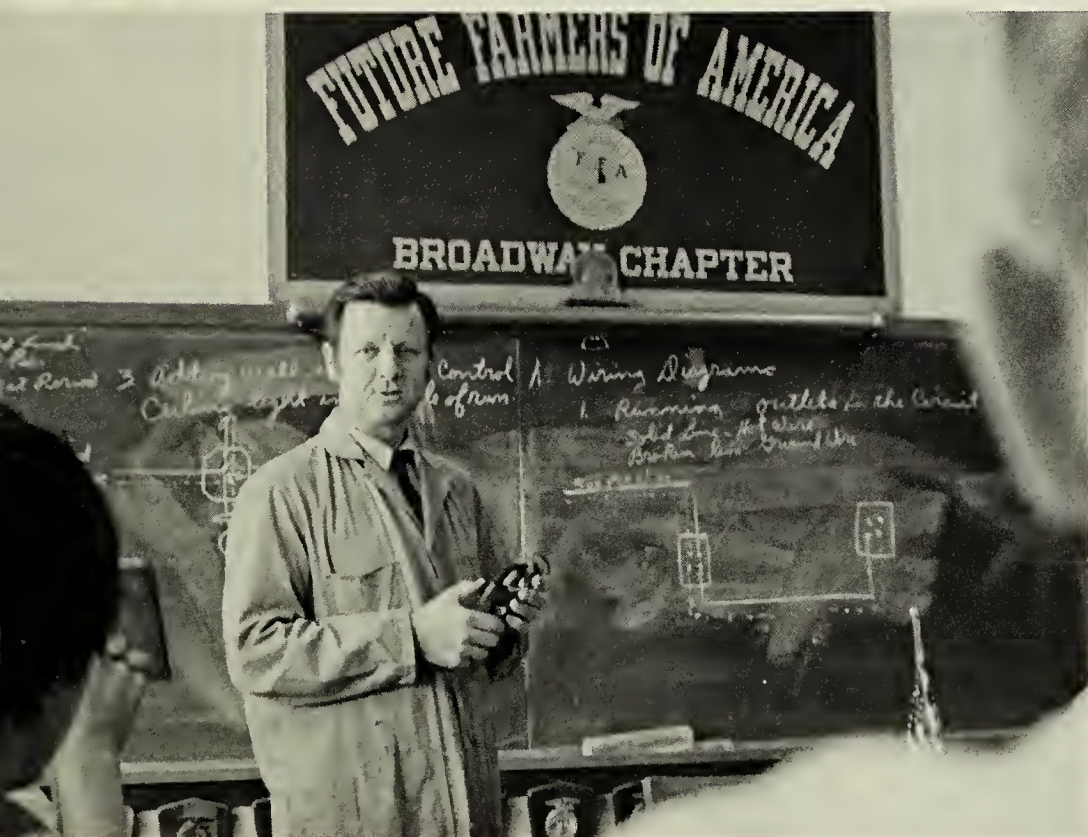 FUTURE FARMERS OF AMERICA
F F A
BROADWAY CHAPTER
3 Adding Control
Ceiling light of run
A. Wiring Diagrams
1. Running outlets in the Circuit
Solid Line - Hot Wire
Broken Line Ground Wire